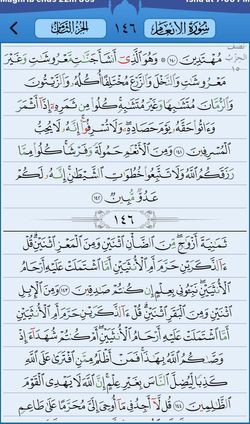 سُورَةُ الأَنْعَامِ ١٤٦ الجُزْءُ الثَّامِنُ
نصف
الحزب
١٥
مُهْتَدِينَ ١٤٠ ۞ وَهُوَ ٱلَّذِىٓ أَنشَأَ جَنَّـٰتٍ مَّعْرُوشَـٰتٍ وَغَيْرَ
مَعْرُوشَـٰتٍ وَٱلنَّخْلَ وَٱلزَّرْعَ مُخْتَلِفًا أُكُلُهُۥ وَٱلزَّيْتُونَ
وَٱلرُّمَّانَ مُتَشَـٰبِهًا وَغَيْرَ مُتَشَـٰبِهٍ ۚ كُلُوا۟ مِن ثَمَرِهِۦٓ إِذَآ أَثْمَرَ
وَءَاتُوا۟ حَقَّهُۥ يَوْمَ حَصَادِهِۦ ۖ وَلَا تُسْرِفُوٓا۟ ۚ إِنَّهُۥ لَا يُحِبُّ
ٱلْمُسْرِفِينَ ١٤١ وَمِنَ ٱلْأَنْعَـٰمِ حَمُولَةً وَفَرْشًا ۚ كُلُوا۟ مِمَّا
رَزَقَكُمُ ٱللَّهُ وَلَا تَتَّبِعُوا۟ خُطُوَٰتِ ٱلشَّيْطَـٰنِ ۚ إِنَّهُۥ لَكُمْ
عَدُوٌّ مُّبِينٌ ١٤٢
١٤٦
ثَمَـٰنِيَةَ أَزْوَٰجٍ ۖ مِّنَ ٱلضَّأْنِ ٱثْنَيْنِ وَمِنَ ٱلْمَعْزِ ٱثْنَيْنِ ۗ قُلْ
ءَآلذَّكَرَيْنِ حَرَّمَ أَمِ ٱلْأُنثَيَيْنِ أَمَّا ٱشْتَمَلَتْ عَلَيْهِ أَرْحَامُ
ٱلْأُنثَيَيْنِ ۖ نَبِّـُٔونِى بِعِلْمٍ إِن كُنتُمْ صَـٰدِقِينَ ١٤٣ وَمِنَ ٱلْإِبِلِ
ٱثْنَيْنِ وَمِنَ ٱلْبَقَرِ ٱثْنَيْنِ ۗ قُلْ ءَآلذَّكَرَيْنِ حَرَّمَ أَمِ ٱلْأُنثَيَيْنِ
أَمَّا ٱشْتَمَلَتْ عَلَيْهِ أَرْحَامُ ٱلْأُنثَيَيْنِ ۖ أَمْ كُنتُمْ شُهَدَآءَ إِذْ
وَصَّىٰكُمُ ٱللَّهُ بِهَـٰذَا ۚ فَمَنْ أَظْلَمُ مِمَّنِ ٱفْتَرَىٰ عَلَى ٱللَّهِ
كَذِبًا لِّيُضِلَّ ٱلنَّاسَ بِغَيْرِ عِلْمٍ ۗ إِنَّ ٱللَّهَ لَا يَهْدِى ٱلْقَوْمَ
ٱلظَّـٰلِمِينَ ١٤٤ قُل لَّآ أَجِدُ فِى مَآ أُوحِىَ إِلَىَّ مُحَرَّمًا عَلَىٰ طَاعِمٍ